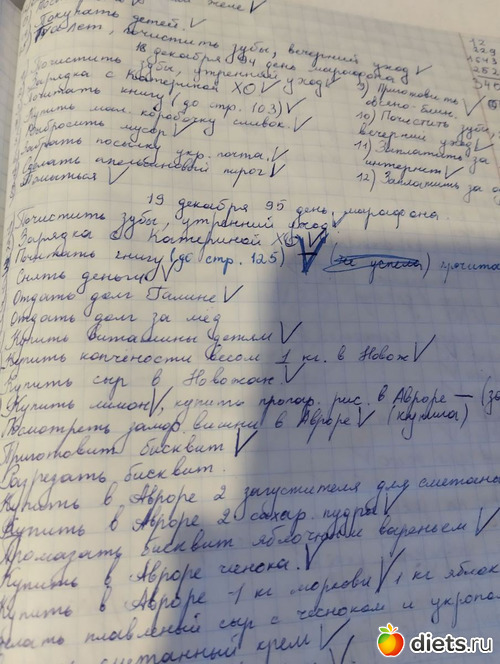 Покупать детей. V
Туалет, почистить зубы, вечерний уход V
18 декабря 94 день марафона
Почистить зубы, утренний уход V
Зарядка с Катериной ХО V
Почитать книгу (до стр. 103) V
Купить мал. коробочку сливок. V
Выбросить мусор V
Забрать посылку укр. почта. V
Сделать апельсиновый пирог V
Помыться V
9) Приготовить
10) Почистить зубы
вечерний уход V
11) Заплатить за
интернет V
12) Заплатить за
19 декабря 95 день марафона
Почистить зубы, утренний уход V
Зарядка с Катериной ХО V
Почитать книгу (до стр. 125) V (не успела)
Снять деньги V
Отдать долг Галине V
Отдать долг за мёд
Купить витамины детям V
Купить копчености весом 1 кг. в Новож V
Купить сыр в Новожан. V
Купить лимон V, купить пропар. рис. в Авроре —
Посмотреть замор. вишни в Авроре V (купила)
Приготовить бисквит V
Разрезать бисквит.
Купить в Авроре 2 загустителя для сметаны
Купить в Авроре 2 сахар. пудры V
Промазать бисквит яблочным вареньем V
Купить в Авроре чеснока. V
Купить в Авроре 1 кг моркови V 1 кг яблок
плавленый сыр с чесноком и укропом
сметанный крем V
diets.ru